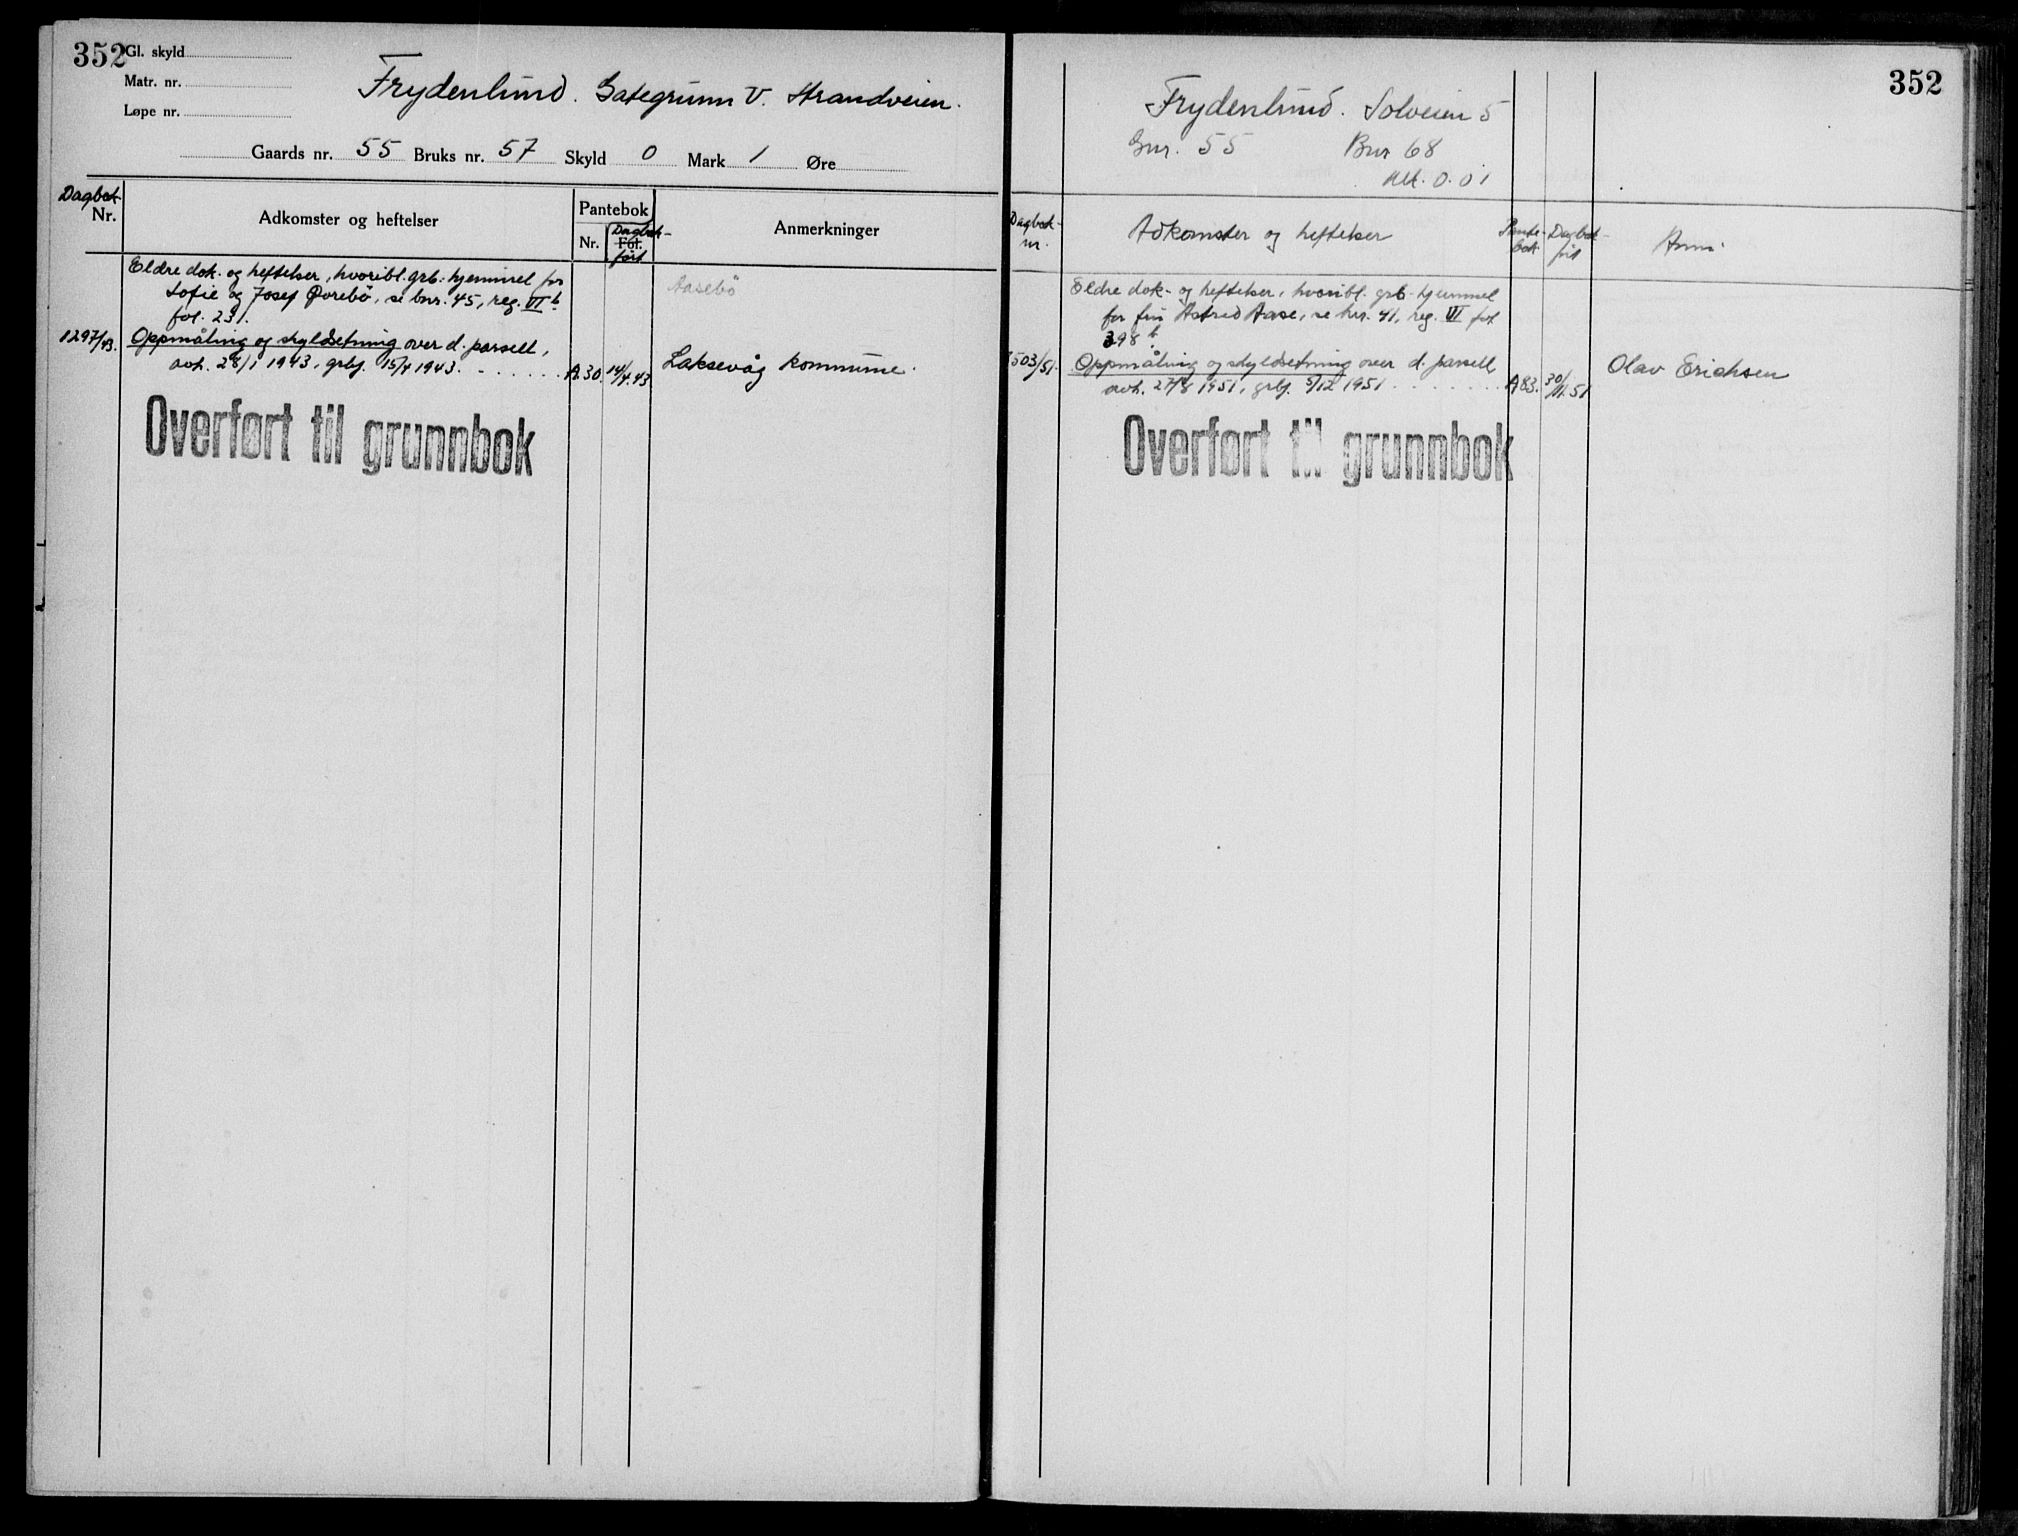 352
Gl. skyld
Matr. nr.
Løpe nr.
Frydenlund. Gategrunn v. Strandveien.
Gaards nr. 55 Bruks nr. 57 Skyld 0 Mark 1 Øre
Dagbok
Nr.
Adkomster og heftelser
Pantebok
Nr.
Fol.
Dagbok-
ført
Anmerkninger
Eldre dok. og heftelser, hvoribl. grb. hjemmel for
Sofie og Josef Øvrebö, se bnr. 45, reg. VI b
fol. 231.
Aasebö
1297/43. Oppmåling og skyldsetning over d. parsell,
avh. 28/1 1943, grbf. 15/4 1943. A.30. 14/4.43 Laksevåg kommune.
Overført til grunnbok
352
Frydenlund. Solveien 5
Gnr. 55 Bnr 68
0.01
Dagbok-
nr.
Adkomster og heftelser
Pante-
bok
Dagbok-
ført
Anm.
Eldre dok- og heftelser, hvoribl. grb. hjemmel
for fru Astrid Aase, se bnr. 41, reg. VI fol
398 b.
503/51. Oppmåling og skyldsetning over d. parsell
avh. 27/8 1951, grbf. 5/12 1951 A83. 30/11.51 Olav Erichsen
Overført til grunnbok